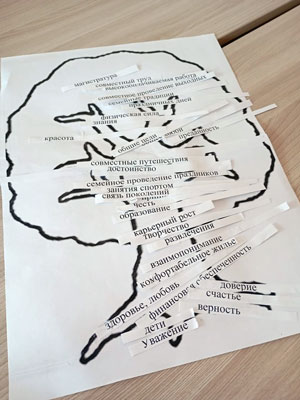 магистратура
совместный труд
высокооплачиваемая работа
совместное проведение выходных
семейные традиции
праздничных дней
физическая сила
знания
красота
общие цели
преданность
совместные путешествия
достоинство
семейное проведение праздников
занятия спортом
связь поколений
честь
образование
карьерный рост
творчество
развлечения
взаимопонимание
комфортабельное жилье
здоровье, любовь
доверие
счастье
верность
дети
Уважение